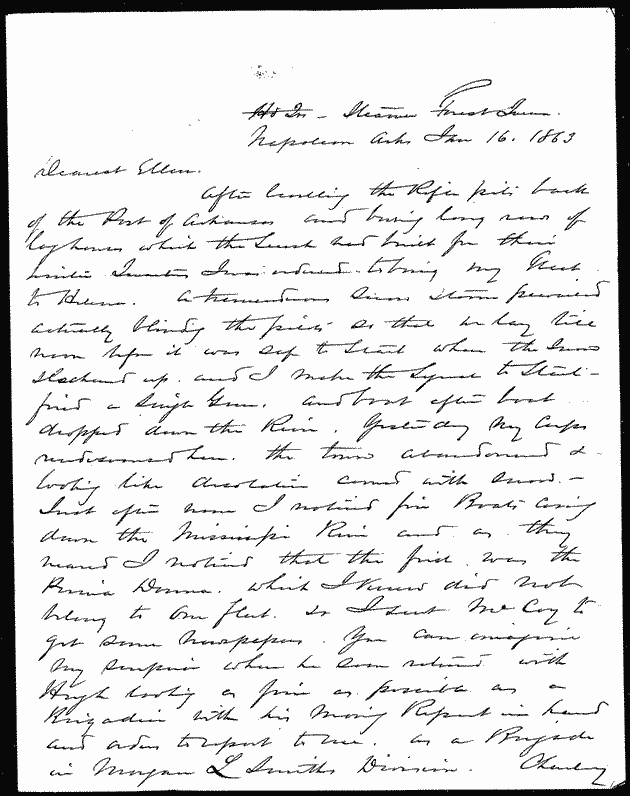 Hd Qrs - Steamer Forest Queen.
Napoleon Arks Jan 16. 1863
Dearest Ellen.
After levelling the Rifle pits back
of the Post of Arkansas and burning long rows of
log houses which the Secesh had built for their
winter Quarters I was ordered to bring my fleet
to Helena. A tremendous snow storm prevailed
actually blinding the pilots so that we lay till
noon before it was safe to start when the snow
slackened up. and I made the Signal to Start -
fired a single Gun. and boat after boat
dropped down the River. Yesterday my Corps
rendezvoused here. the town abandoned &
looking like desolation covered with snow. -
Just after noon I noticed five Boats coming
down the Mississippi River and as they
neared I noticed that the first was the
Prima Donna. which I knew did not
belong to our fleet. so I sent McCoy to
get some newspapers. You can imagine
my surprise when he soon returned with
Hugh looking as fine as possible as a
Brigadier with his Morning Report in hand
and orders to report to me. as a Brigade
in Morgan L Smiths Division. Charley